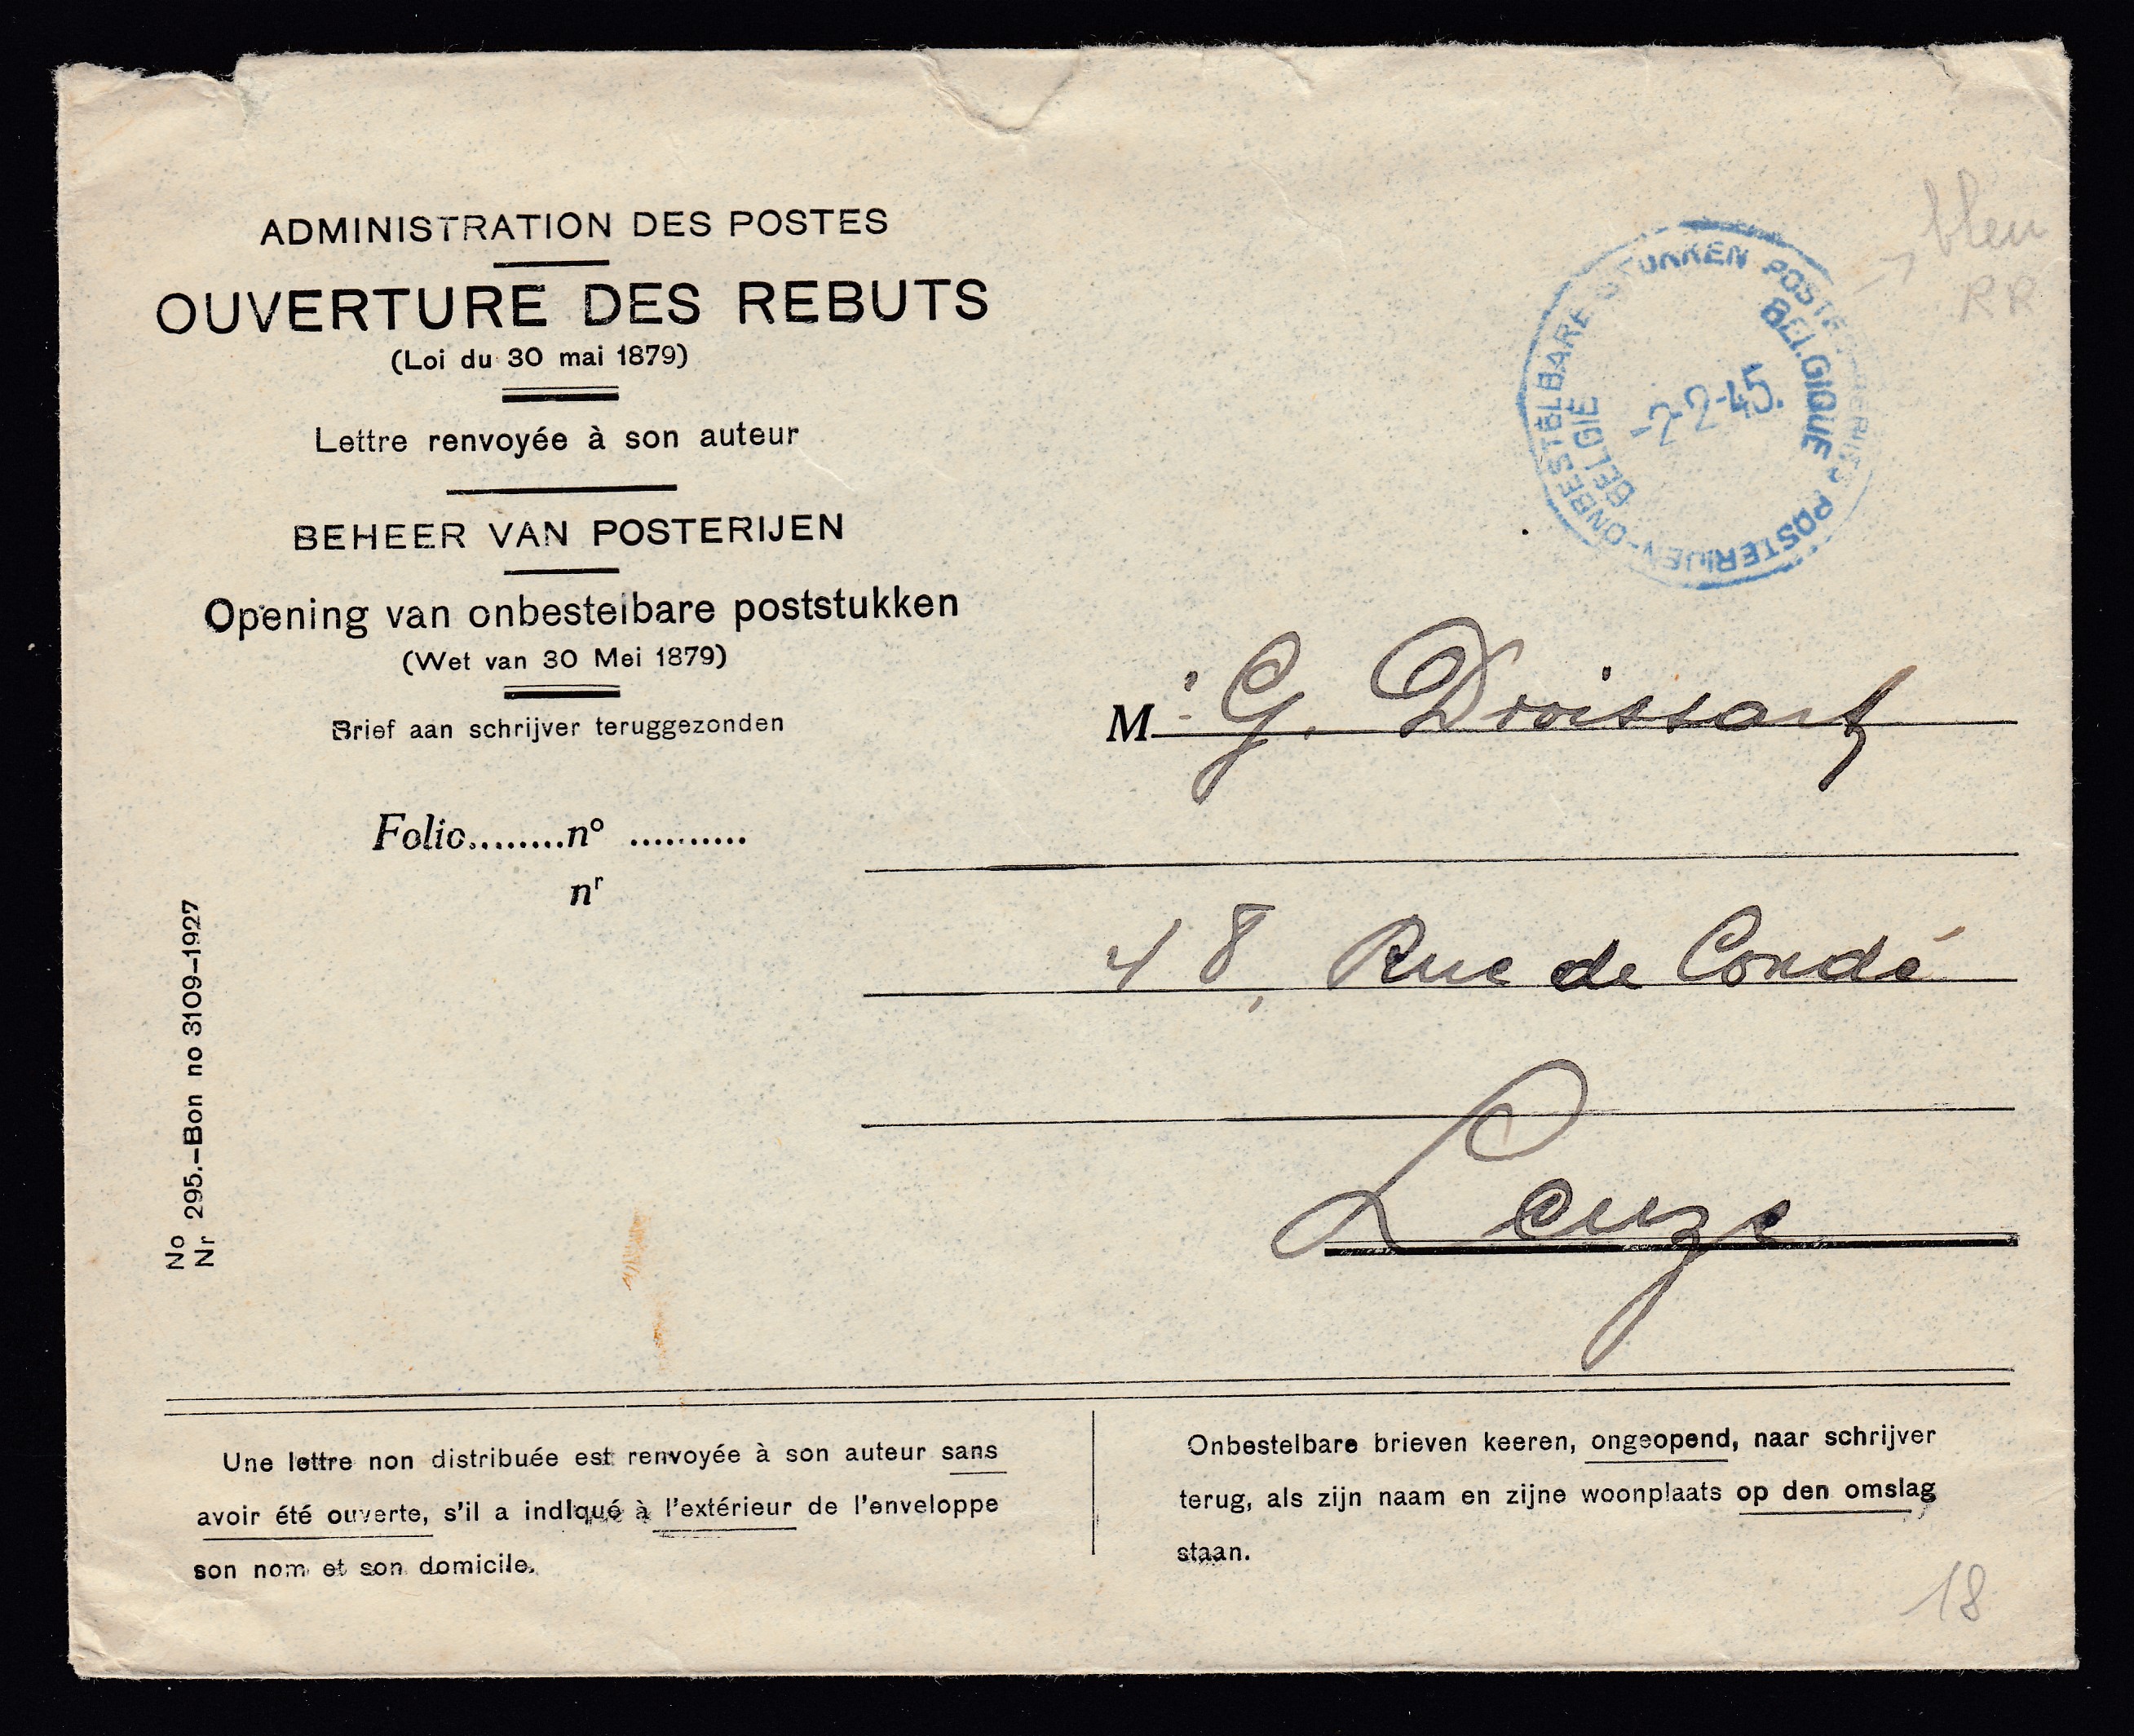 ADMINISTRATION DES POSTES
OUVERTURE DES REBUTS
(Loi du 30 mai 1879)
Lettre renvoyée à son auteur
BEHEER VAN POSTERIJEN
Opening van onbestelbare poststukken
(Wet van 30 Mei 1879)
Brief aan schrijver teruggezonden
Folio.........nº ..........
nʳ
No
Nr 295.–Bon no 3109–1927
POSTERIJEN-ONBESTELBARE STUKKEN POSTES-REBUTS
BELGIE BELGIQUE
-2-2-45.
bleu
RR
M. G. Droissart
48, Rue de Condé
Leuze
Une lettre non distribuée est renvoyée à son auteur sans
avoir été ouverte, s'il a indiqué à l'extérieur de l'enveloppe
son nom et son domicile.
Onbestelbare brieven keeren, ongeopend, naar schrijver
terug, als zijn naam en zijne woonplaats op den omslag
staan.
18